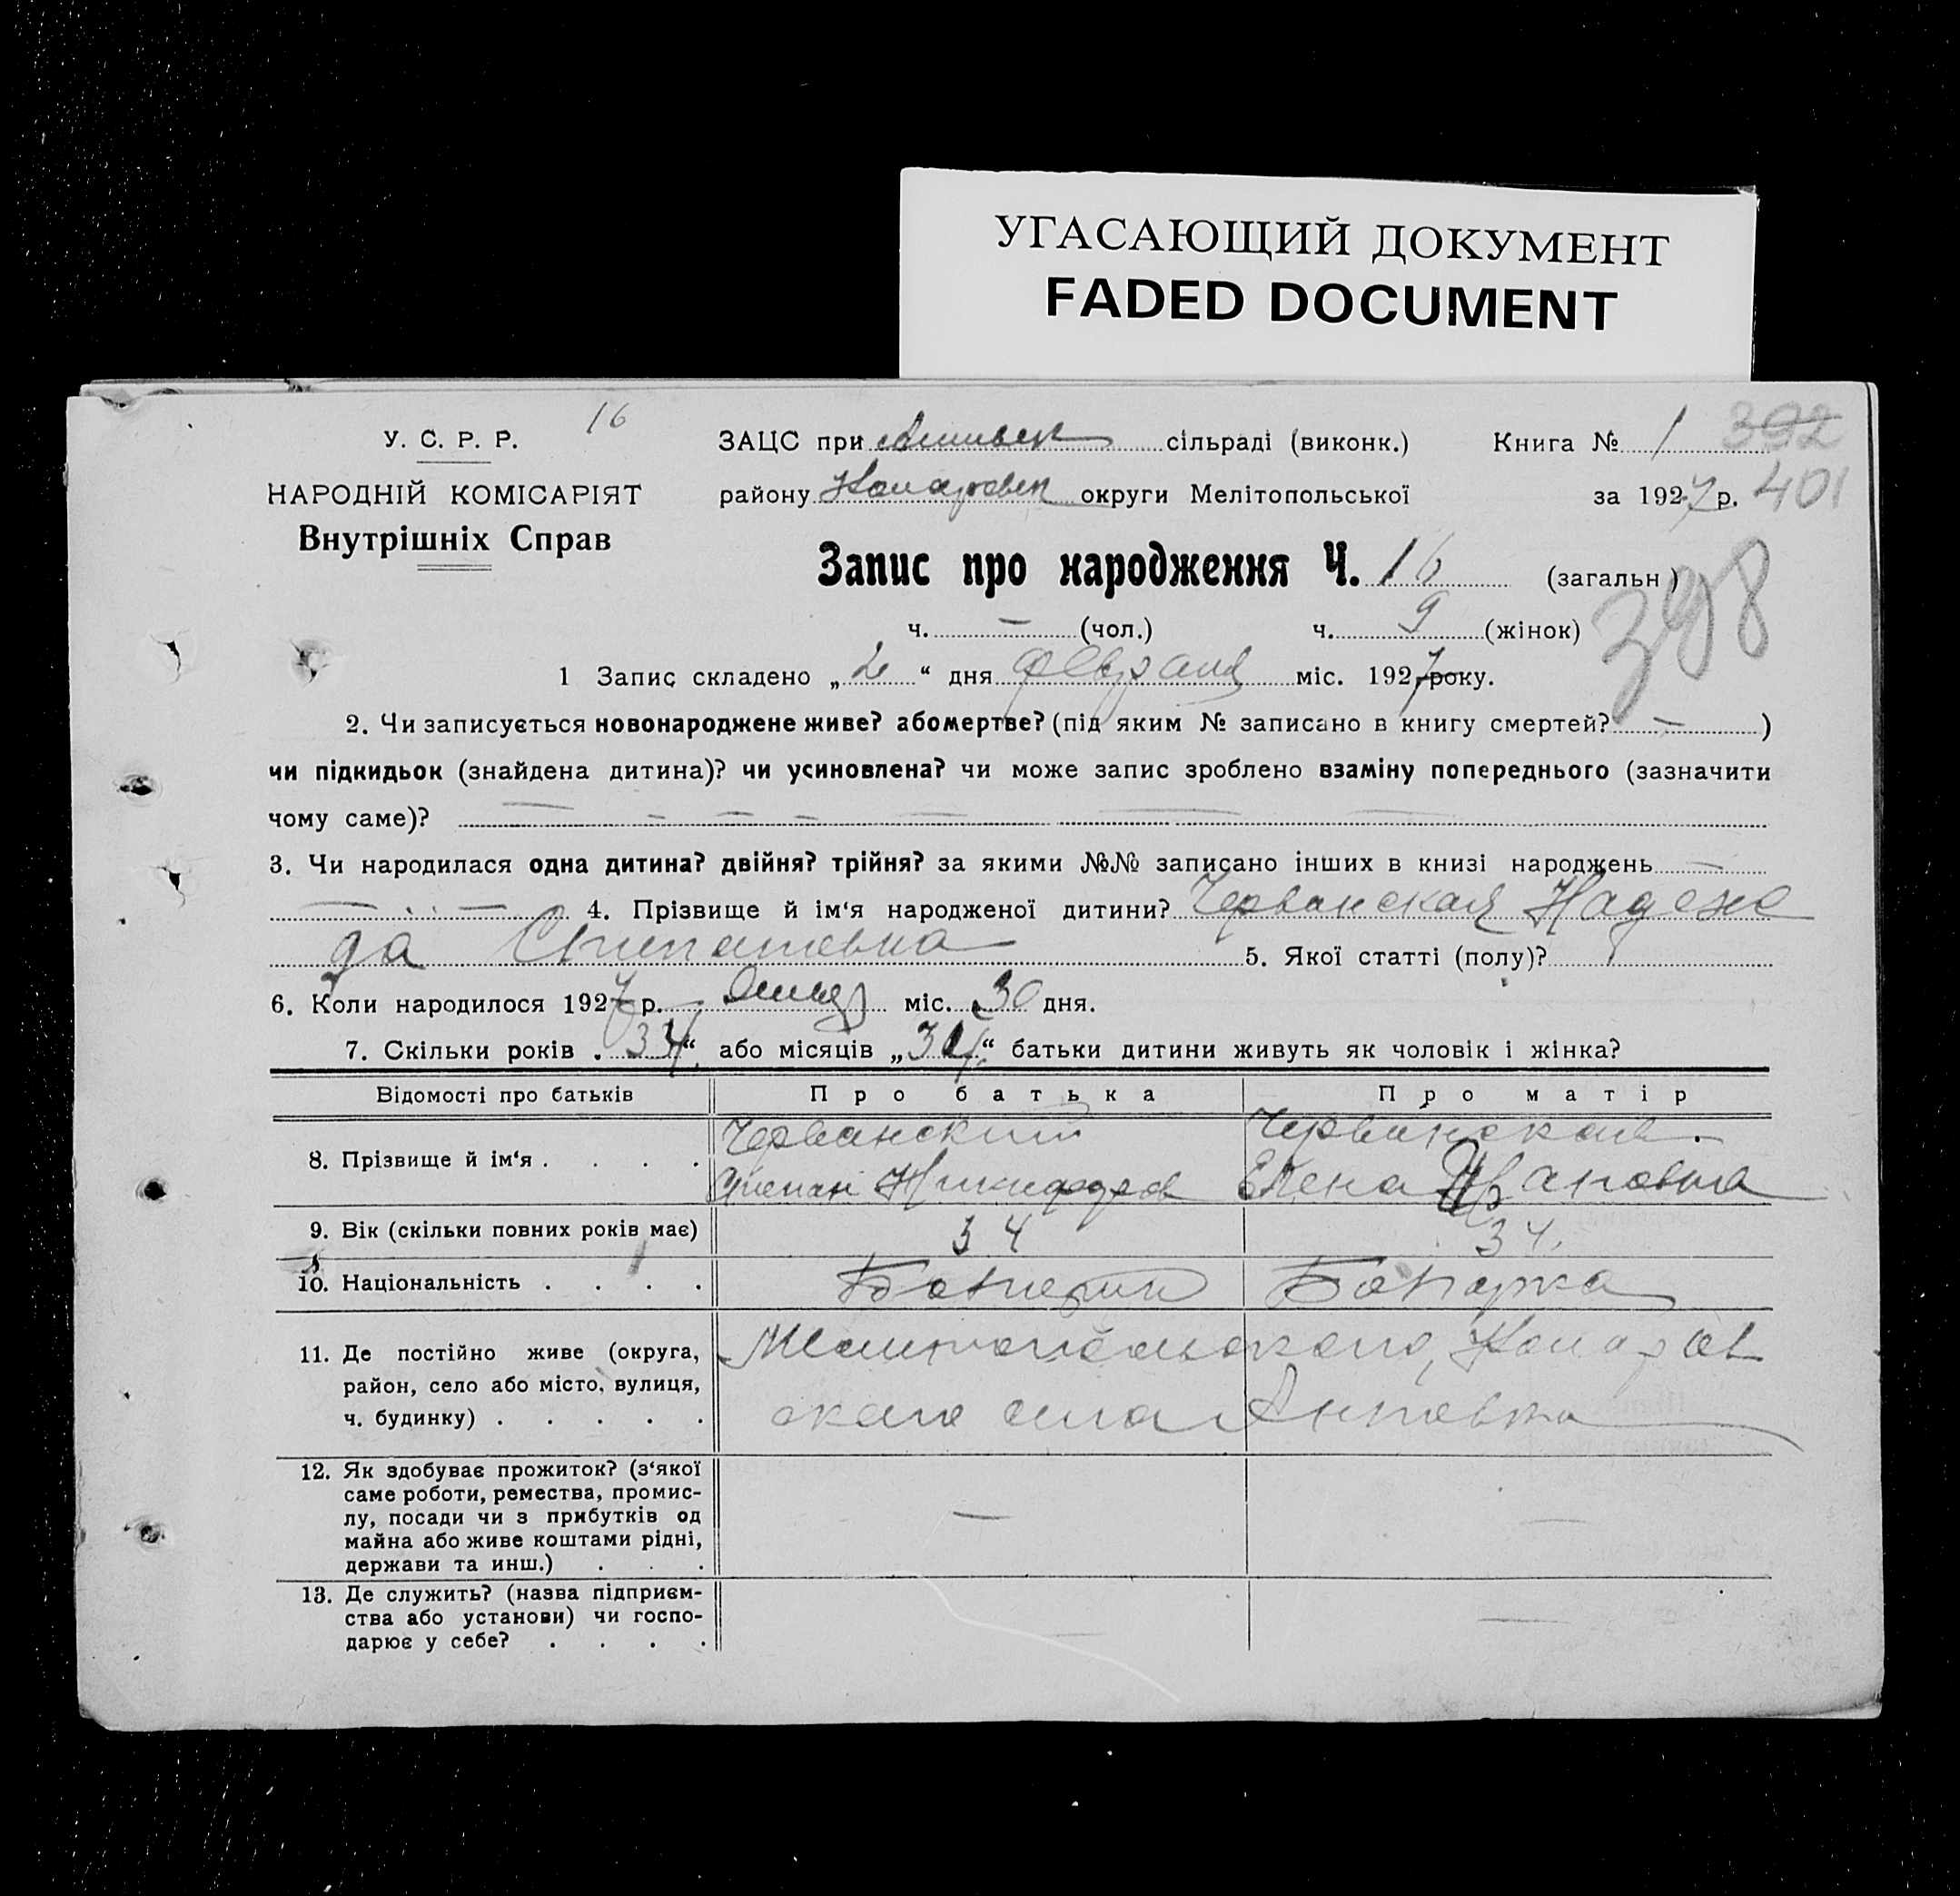 УГАСАЮЩИЙ ДОКУМЕНТ
FADED DOCUMENT
16
У. С. Р. Р.
НАРОДНІЙ КОМІСАРІЯТ
Внутрішніх Справ
ЗАЦС при сільраді (виконк.) Книга № 1 392
району округи Мелітопольської за 1927 р. 401
Запис про народження Ч. 16 (загальн)
ч. — (чол.) ч. 9 (жінок) 398
1 Запис складено „2“ дня февраля міс. 1927 року.
2. Чи записується новонароджене живе? або мертве? (під яким № записано в книгу смертей? — )
чи підкидьок (знайдена дитина)? чи усиновлена? чи може запис зроблено взаміну попереднього (зазначити
чому саме)? — — — — — — —
3. Чи народилася одна дитина? двійня? трійня? за якими №№ записано інших в книзі народжень —
— — 4. Прізвище й ім‘я народженої дитини? Черванская Надеж
да 5. Якої статті (полу)?
6. Коли народилося 1927 р. міс. 30 дня.
7. Скільки років „34“ або місяців „ “ батьки дитини живуть як чоловік і жінка?
Відомості про батьків Про батька Про матір
8. Прізвище й ім‘я . . . .
Черванский Черванская.
Степан Никифоров Елена Ивановна
9. Вік (скільки повних років має) 34 34.
10. Національність . . . . Болгарин Болгарка
11. Де постійно живе (округа,
район, село або місто, вулиця,
ч. будинку) . . . . .
Мелитопольского,
ского села
12. Як здобуває прожиток? (з‘якої
саме роботи, ремества, промис-
лу, посади чи з прибутків од
майна або живе коштами рідні,
держави та инш.) . . . — —
13. Де служить? (назва підприєм-
ства або установи) чи госпо-
дарює у себе? . . . . — —